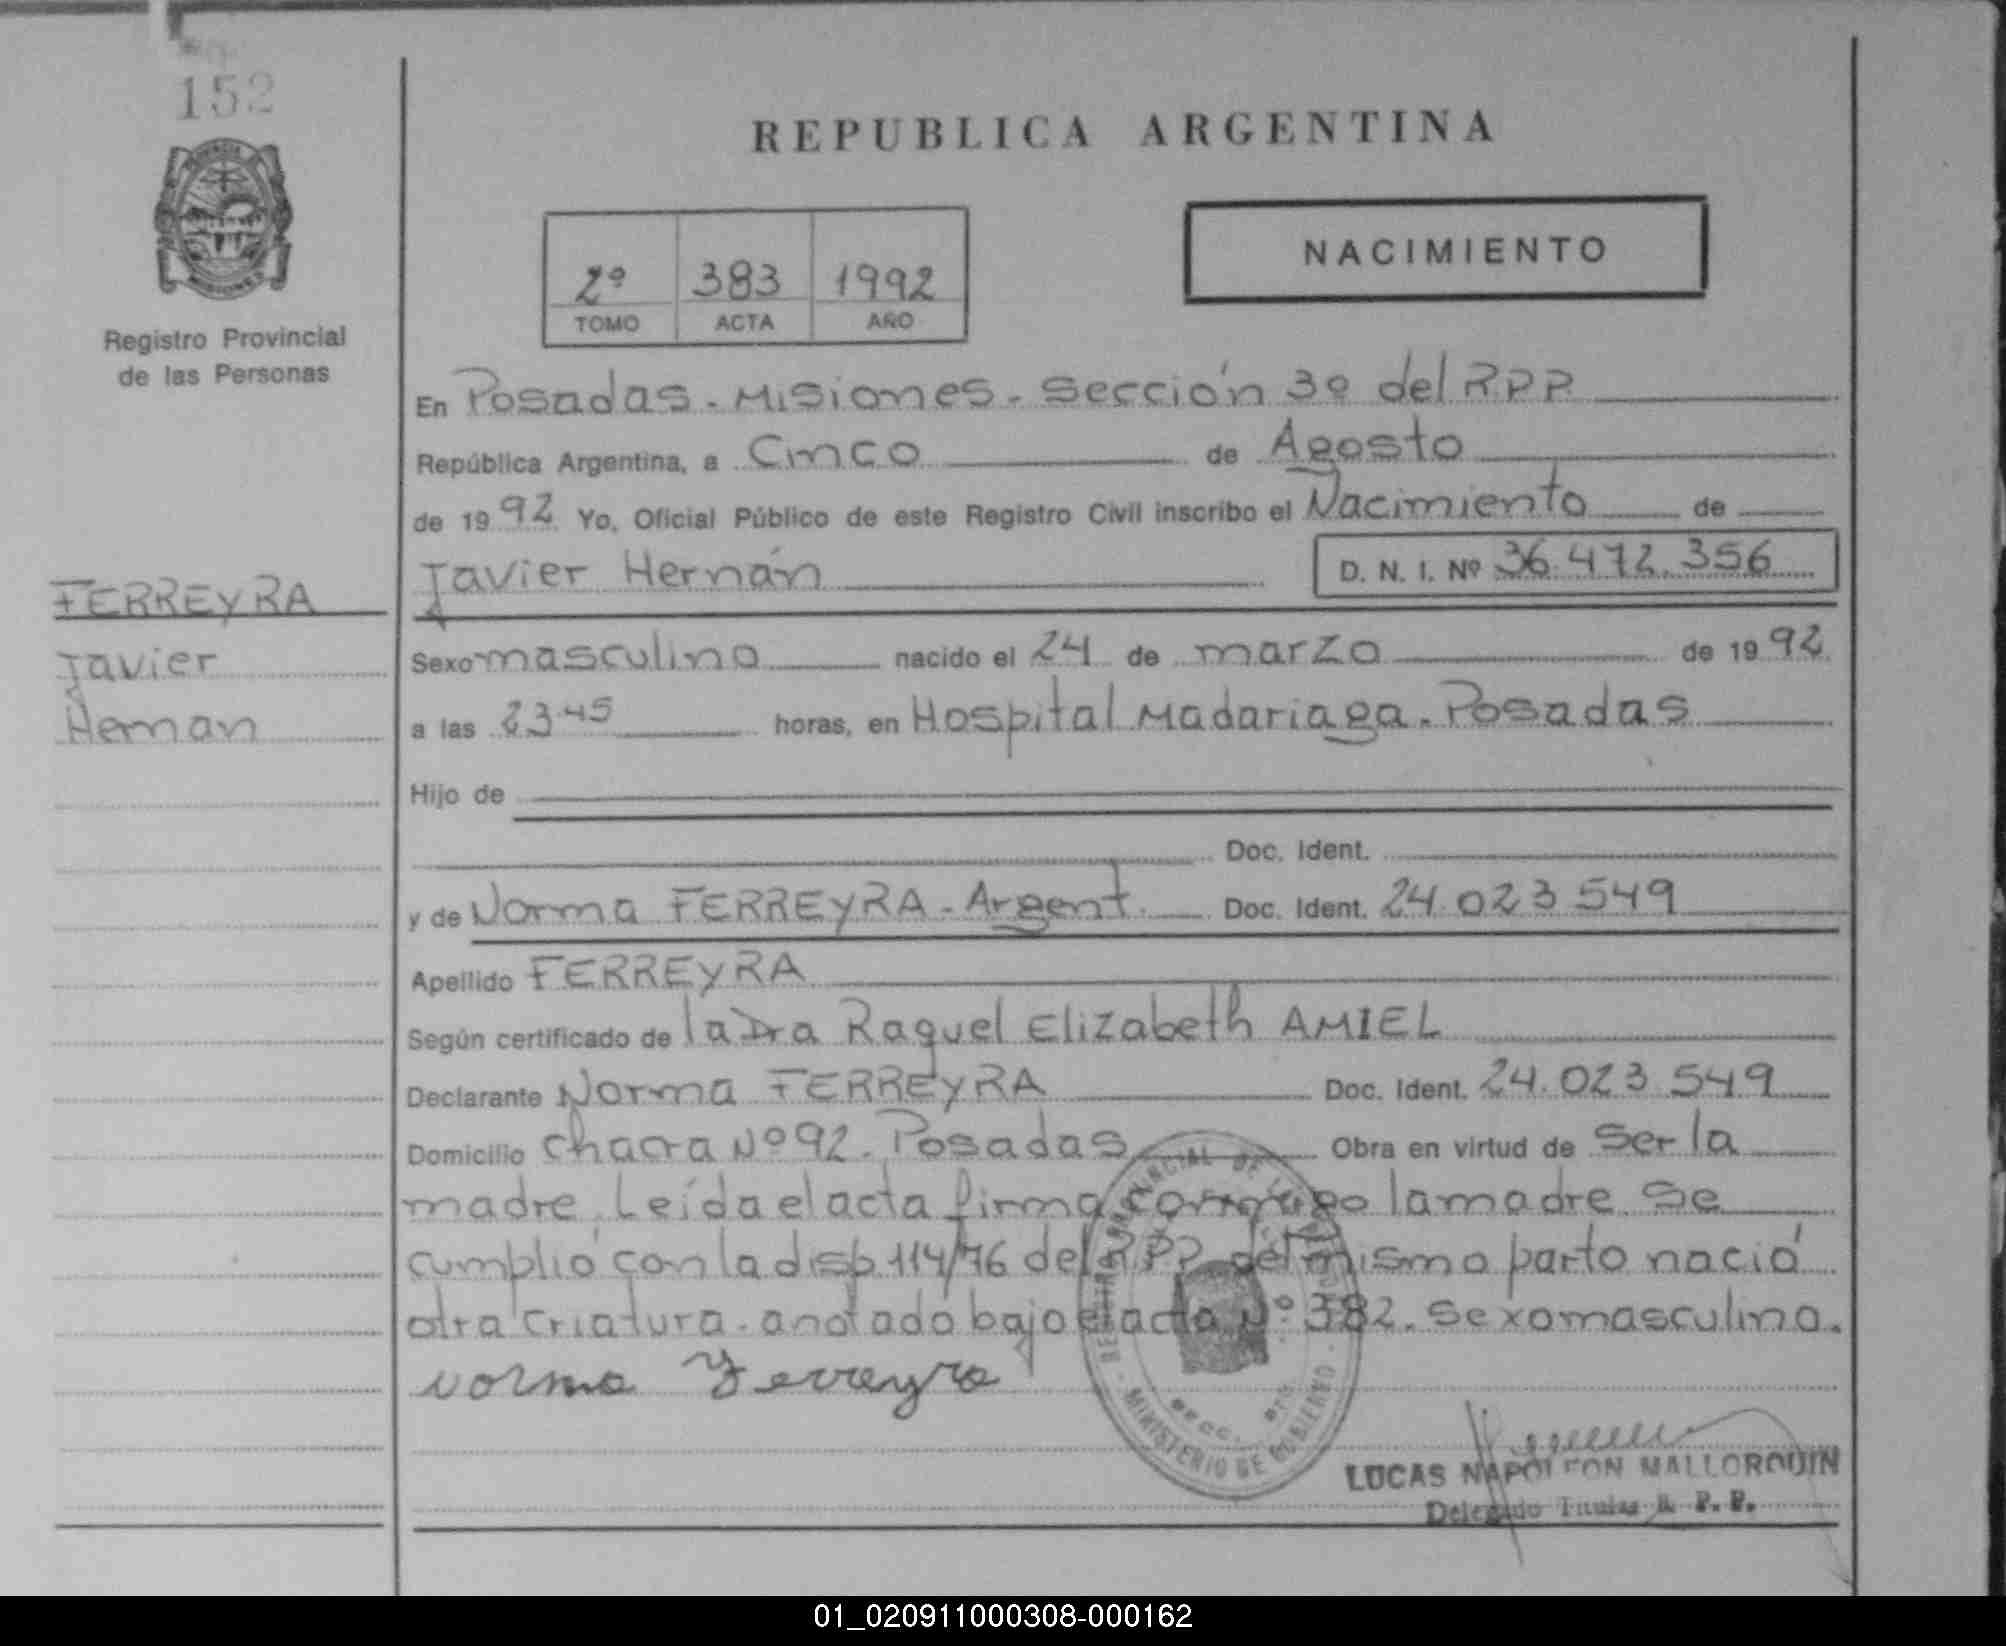 152
REPUBLICA ARGENTINA
NACIMIENTO
2º 383 1992
TOMO ACTA AÑO
Registro Provincial
de las Personas
En Posadas - Misiones - Sección 3º del R.P.P.
República Argentina, a Cinco de Agosto
de 19 92 Yo, Oficial Público de este Registro Civil inscribo el Nacimiento de
Javier Hernán D. N. I. Nº 36.472.356
FERREYRA
Javier
Hernan
Sexo masculino nacido el 24 de marzo de 19 92
a las 23.45 horas, en Hospital Madariaga. Posadas
Hijo de
Doc. Ident.
y de Norma FERREYRA - Argent. Doc. Ident. 24.023.549
Apellido FERREYRA
Según certificado de la Dra Raquel Elizabeth AMIEL
Declarante Norma FERREYRA Doc. Ident. 24.023.549
Domicilio Chacra Nº 92. Posadas Obra en virtud de ser la
madre. Leída el acta firma conmigo la madre. Se
cumplió con la disp. 114/76 del R.P.P. del mismo parto nació
otra criatura. anotado bajo el acta Nº 382. sexo masculino.
Norma Ferreyra
MINISTERIO DE GOBIERNO
LUCAS NAPOLEON MALLORQUIN
Delegado Titular R. P. P.
01_020911000308-000162